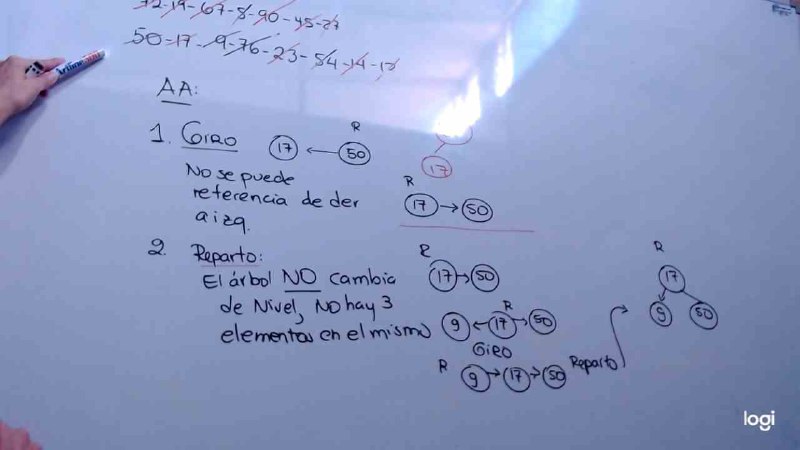 72-19-67-8-90-45-27
50-17-9-76-23-54-14-12
Artline
AA:
1. GIRO
17 ← 50
R
17
No se puede
referencia de der
a izq.
R
17 → 50
2. Reparto:
El árbol NO cambia
de Nivel, NO hay 3
elementos en el mismo
R
17 → 50
R
9 ← 17 → 50
GIRO
R
9 → 17 → 50
Reparto
R
17
9
50
logi